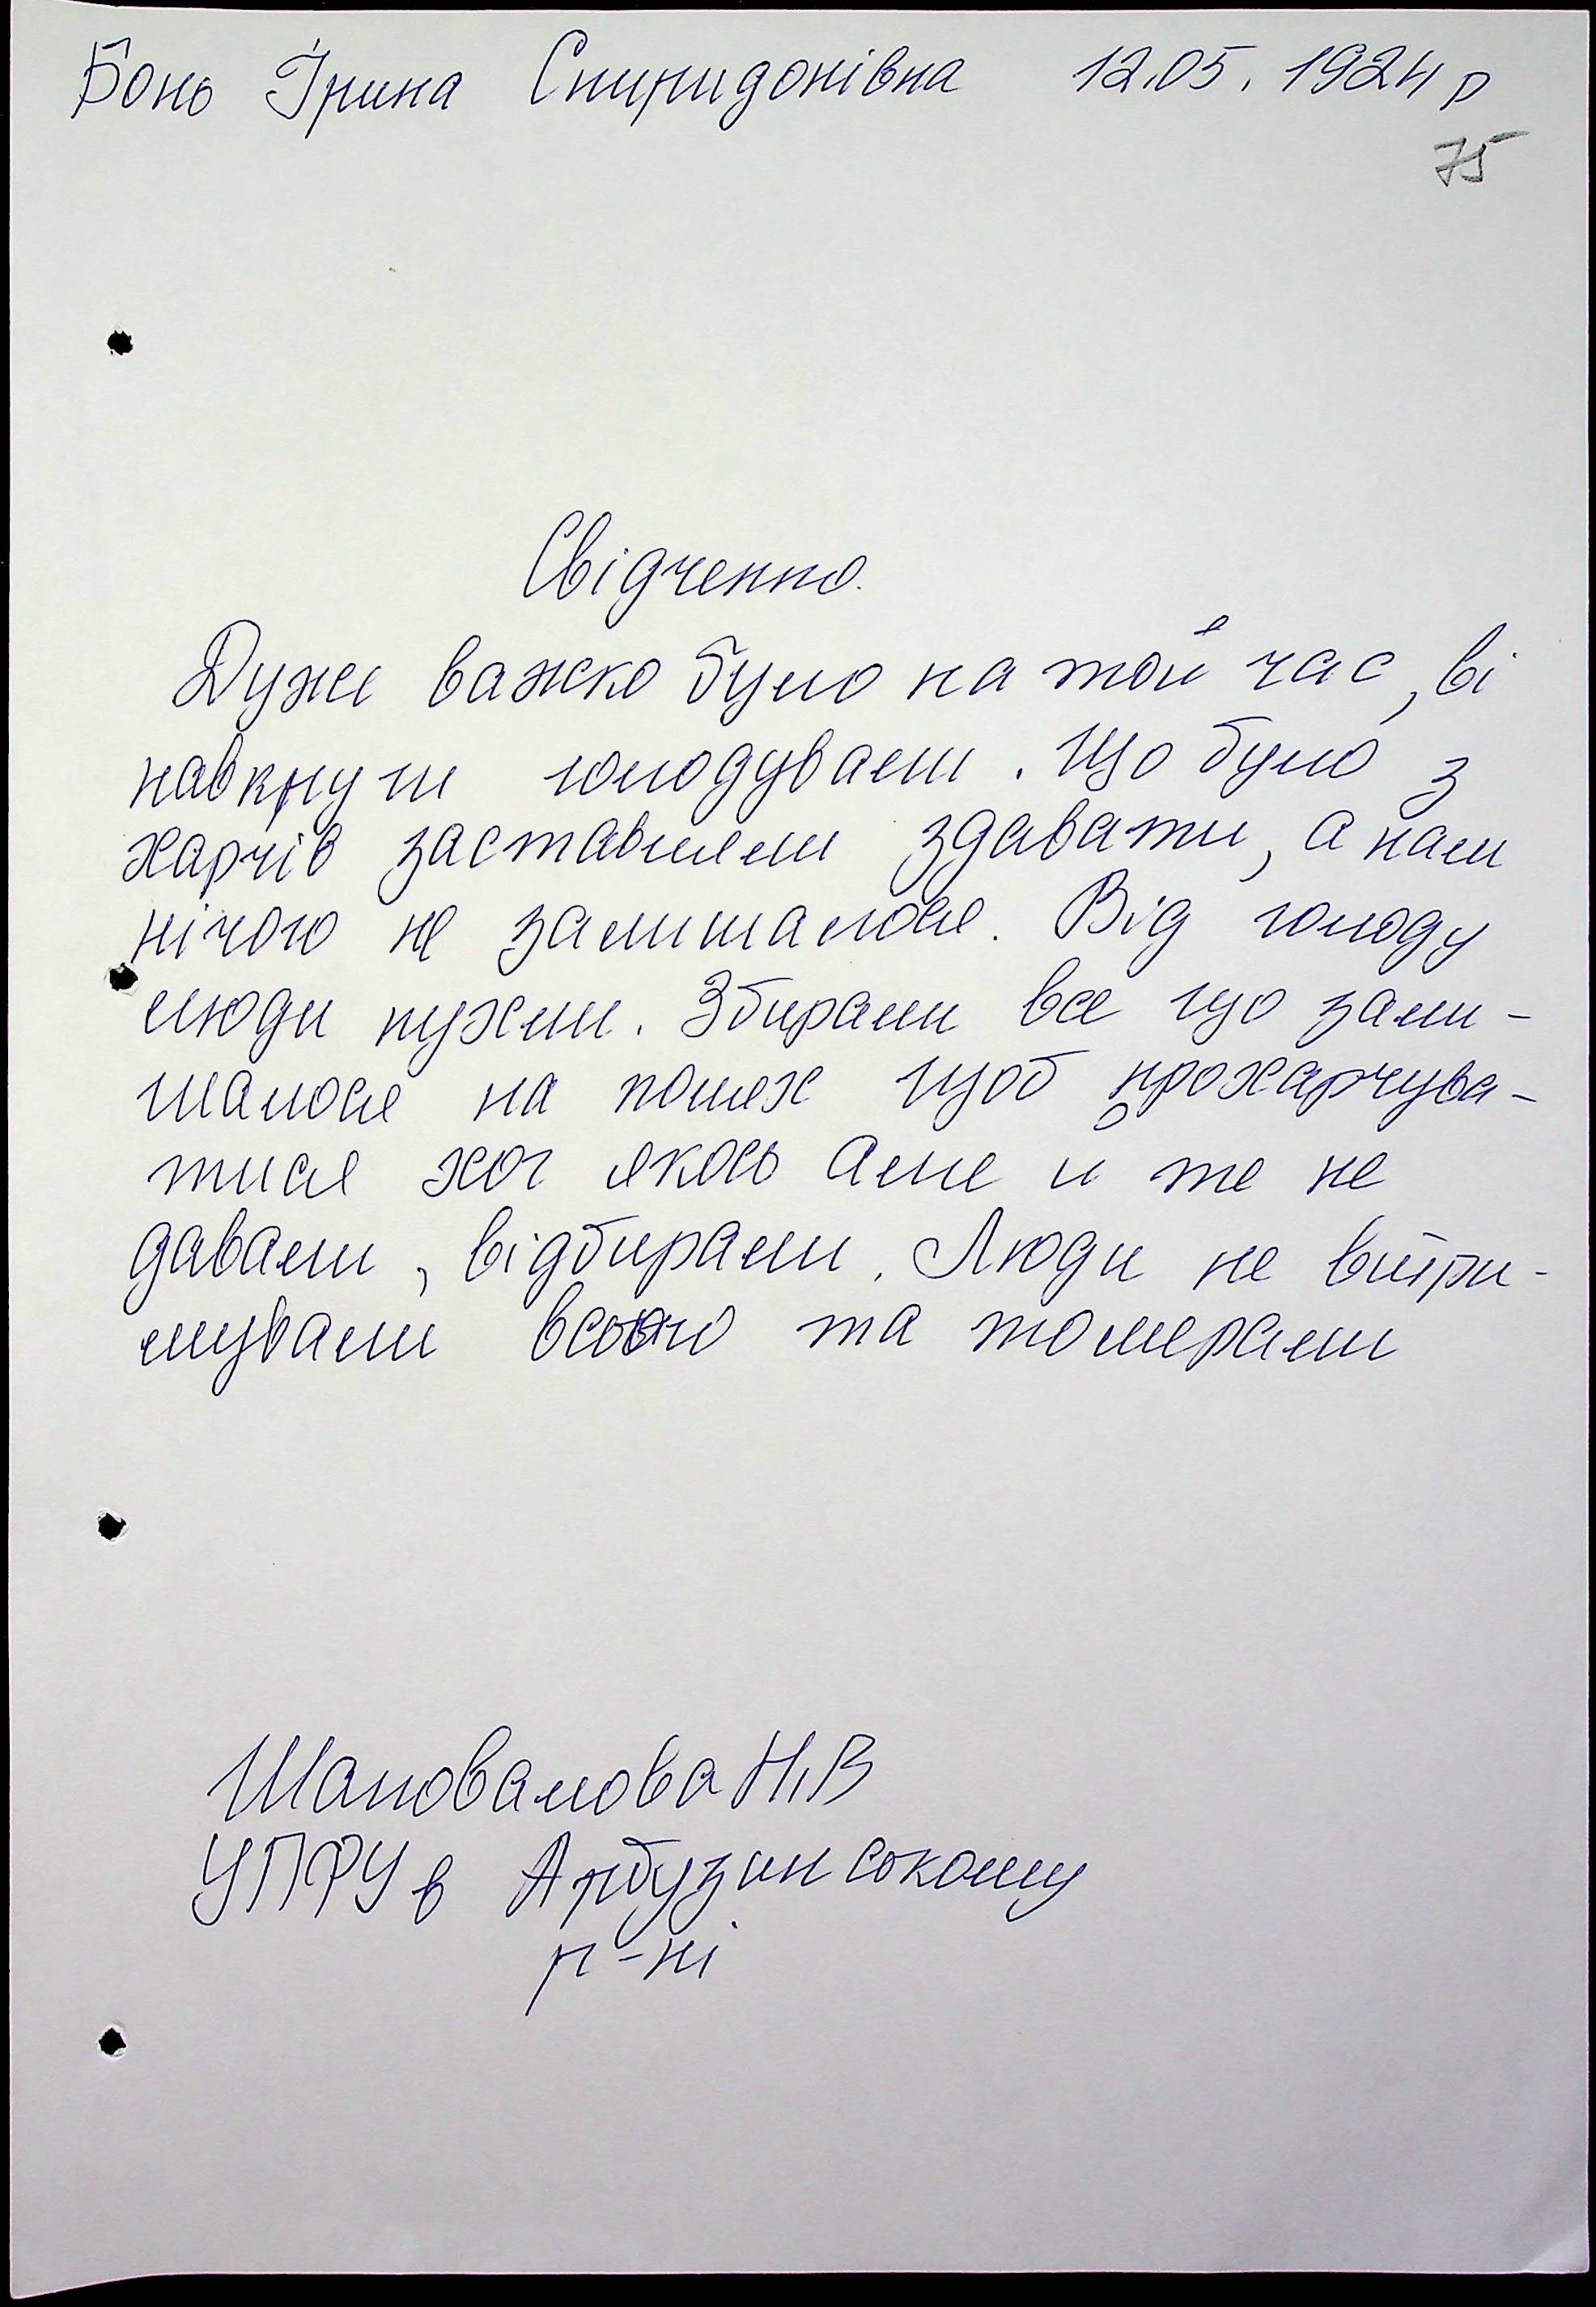 Бонь Ірина Спиридонівна 12.05.1924 р
75
Свідчення.
Дуже важко було на той час, ві
навкруги голодували. Що було з
харчів заставляли здавати, а нам
нічого не залишалося. Від голоду
люди пухли. Збирали все що зали-
шалося на полях щоб прохарчува-
тися хоч якось але и те не
давали, відбирали. Люди не витри-
мували всього та помирали
Шаповалова Н.В
УПФУ в Арбузинському
р-ні